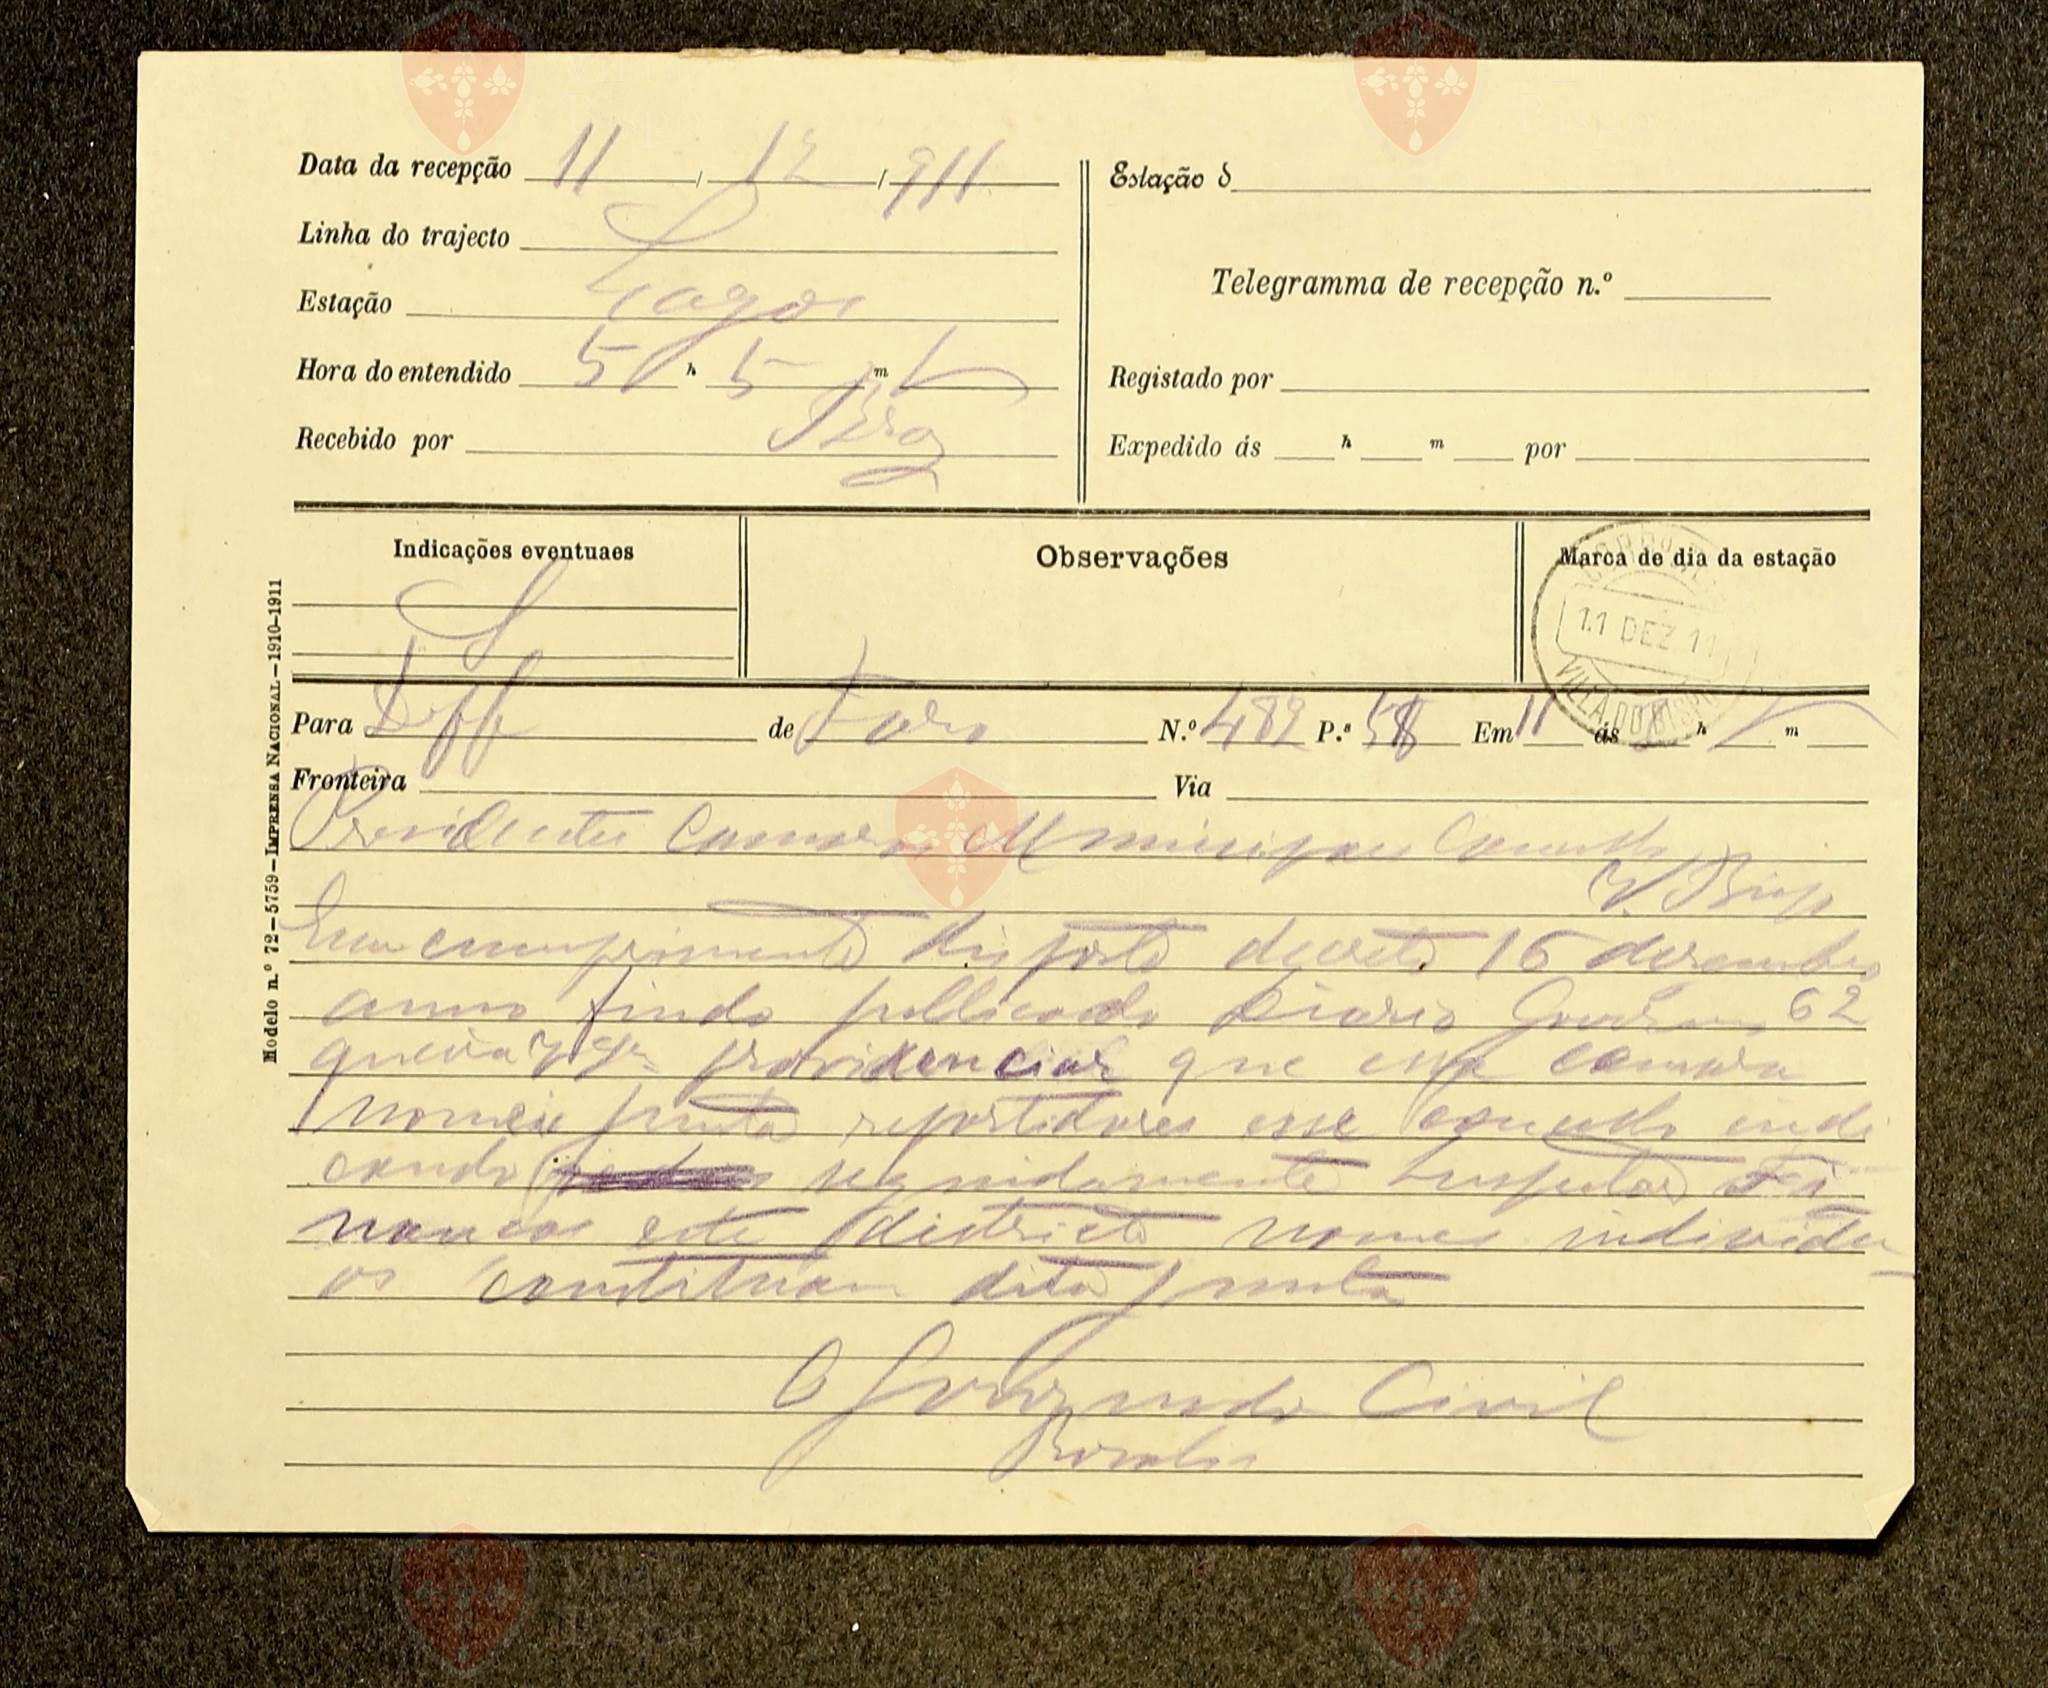 Data da recepção 11 / 12 / 911
Linha do trajecto
Estação Lagos
Hora do entendido 5 h 5 m
Recebido por Braz
Estação d
Telegramma de recepção n.º
Registado por
Expedido ás h m por
Indicações eventuaes
Observações
Marca de dia da estação
S
11 DEZ 11
VILLA DO BISPO
Para Dff de Faro N.º 482 P.ª 58 Em 11 ás h m
Fronteira Via
Presidente Camara Municipal Concelho
V. Bispo
Em cumprimento disposto decreto 16 dezembro
anno findo publicado Diario Governo 62
queira V Ex providenciar que essa camara
nomeie junta repartidores esse concelho indi
cando seguidamente Inspetor Fi
nanças este districto nomes individu
os constituam dita junta
O Governador Civil
Modelo n.º 72—5759—IMPRENSA NACIONAL—1910-1911